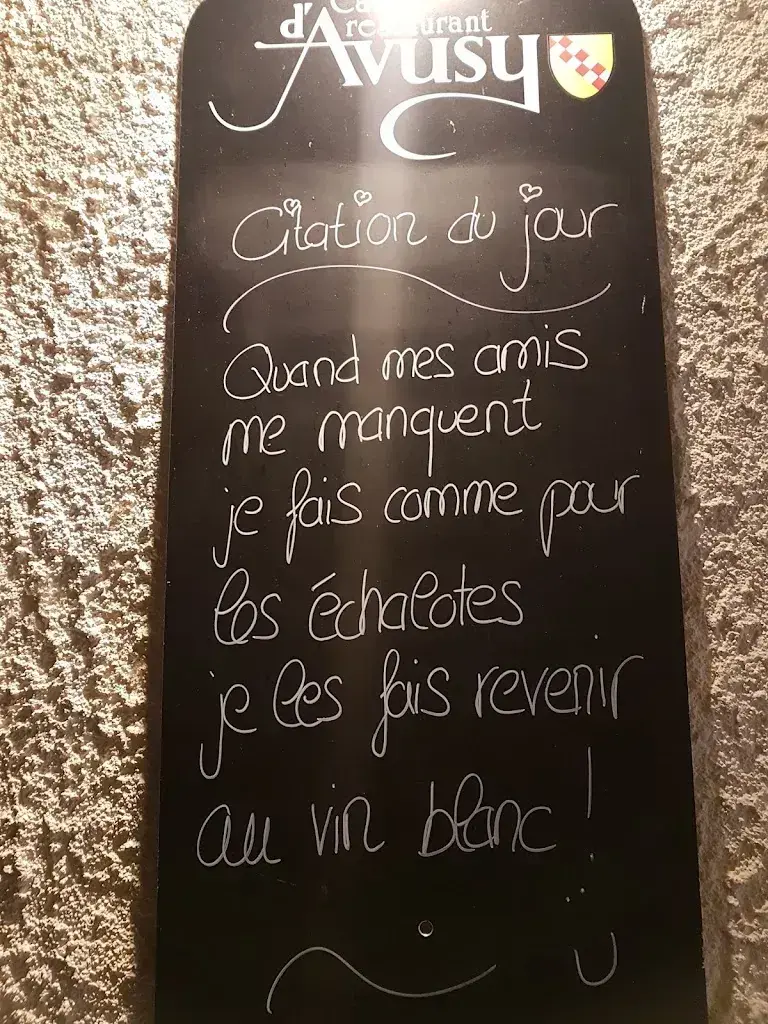 restaurant
d'Avusy
Citation du jour
Quand mes amis
me manquent
je fais comme pour
les échalotes
je les fais revenir
au vin blanc !